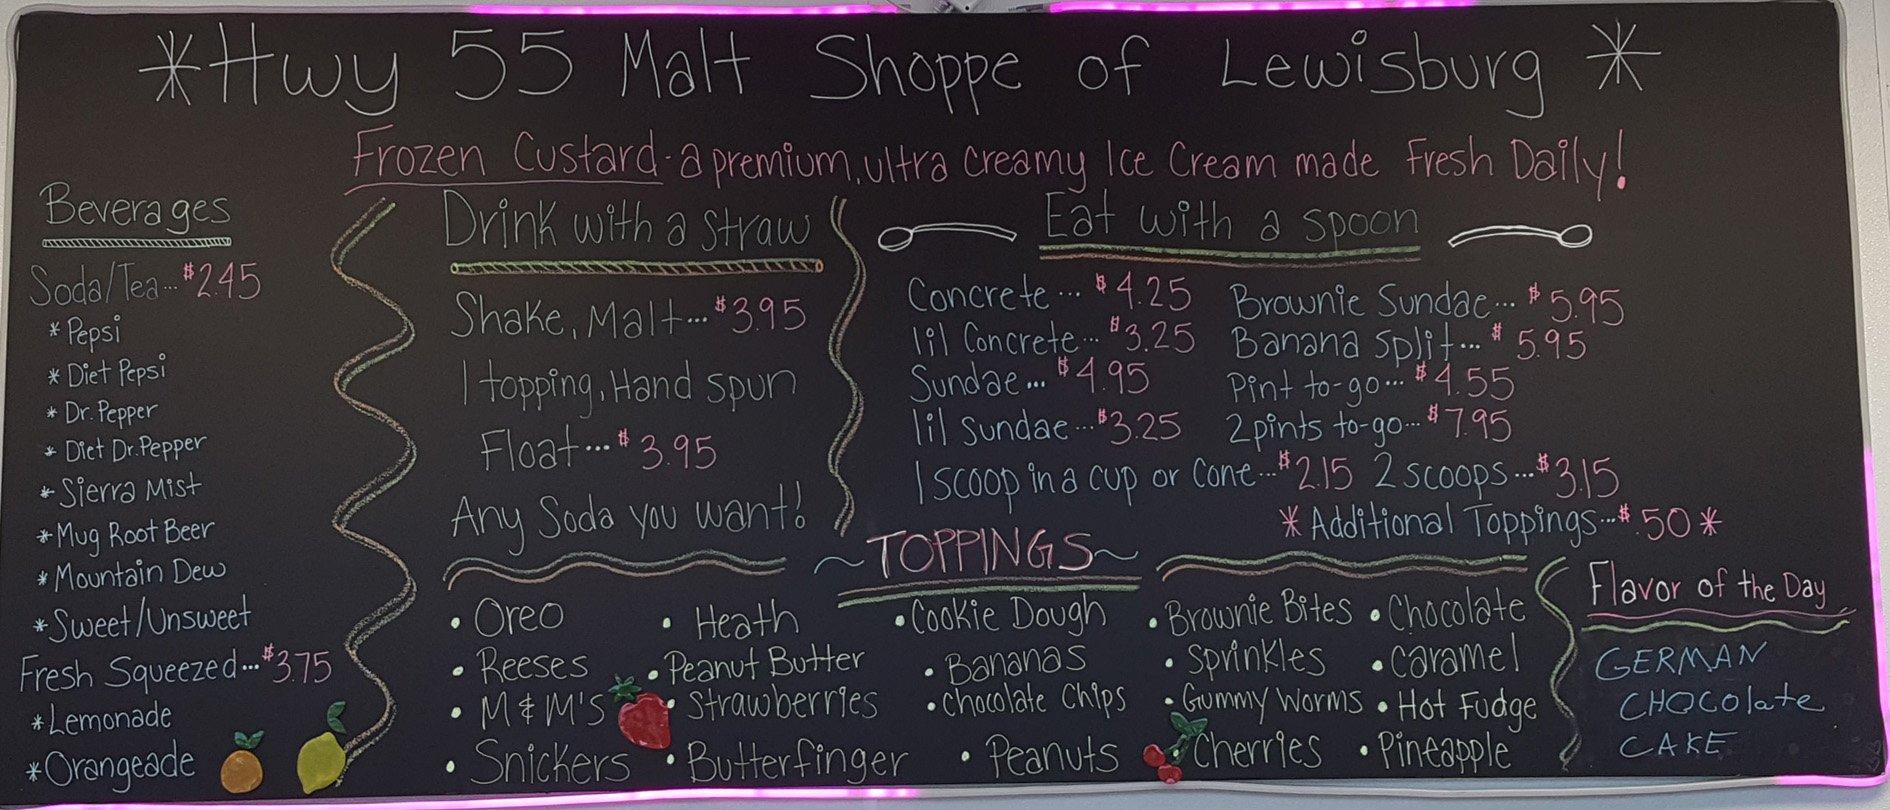 *Hwy 55 Malt Shoppe of Lewisburg*
Frozen Custard - a premium, ultra creamy Ice Cream made Fresh Daily!
Beverages
Soda/Tea...$2.45
* Pepsi
* Diet Pepsi
* Dr. Pepper
* Diet Dr. Pepper
* Sierra Mist
* Mug Root Beer
* Mountain Dew
* Sweet/Unsweet
Fresh Squeezed...$3.75
* Lemonade
* Orangeade
Drink with a straw
Shake, Malt...$3.95
1 topping, Hand spun
Float...$3.95
Any Soda you want!
Eat with a spoon
Concrete...$4.25
lil Concrete...$3.25
Sundae...$4.95
lil Sundae...$3.25
Brownie Sundae...$5.95
Banana Split...$5.95
Pint to-go...$4.55
2 pints to-go...$7.95
1 scoop in a cup or cone...$2.15 2 scoops...$3.15
* Additional Toppings...$.50 *
~TOPPINGS~
• Oreo
• Reeses
• M&M's
• Snickers
• Heath
• Peanut Butter
• Strawberries
• Butterfinger
• Cookie Dough
• Bananas
• Chocolate Chips
• Peanuts
• Brownie Bites
• Sprinkles
• Gummy Worms
• Cherries
• Chocolate
• Caramel
• Hot Fudge
• Pineapple
Flavor of the Day
GERMAN
CHOColate
CAKE